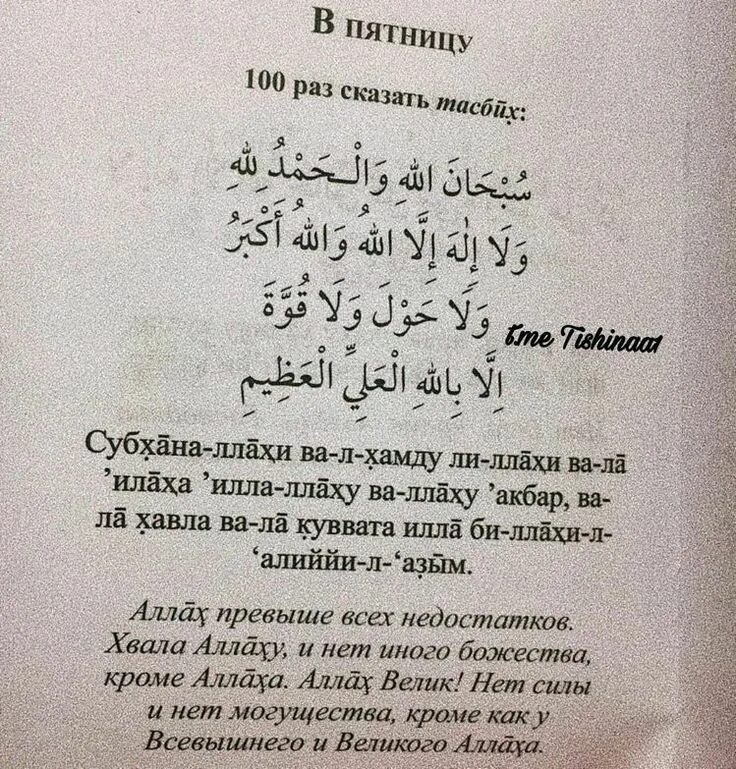 В пятницу
100 раз сказать тасбӣх̣:
سُبْحَانَ اللهِ وَالْـحَمْدُ لِلهِ
وَلَا إِلٰهَ إِلَّا اللهُ وَاللهُ أَكْبَرُ
وَلَا حَوْلَ وَلَا قُوَّةَ
t.me Tishinaat
اِلَّا بِاللهِ الْعَلِيِّ الْعَظِيمِ
Субх̣а̄на-лла̄ҳи ва-л-х̣амду ли-лла̄ҳи ва-ла̄
’ила̄ҳа ’илла-лла̄ҳу ва-лла̄ҳу ’акбар, ва-
ла̄ х̣авла ва-ла̄ қуввата илла̄ би-лла̄ҳи-л-
‘алиййи-л-‘аз̣ы̄м.
Алла̄ҳ превыше всех недостатков.
Хвала Алла̄ҳу, и нет иного божества,
кроме Алла̄ҳа. Алла̄ҳ Велик! Нет силы
и нет могущества, кроме как у
Всевышнего и Великого Алла̄ҳа.